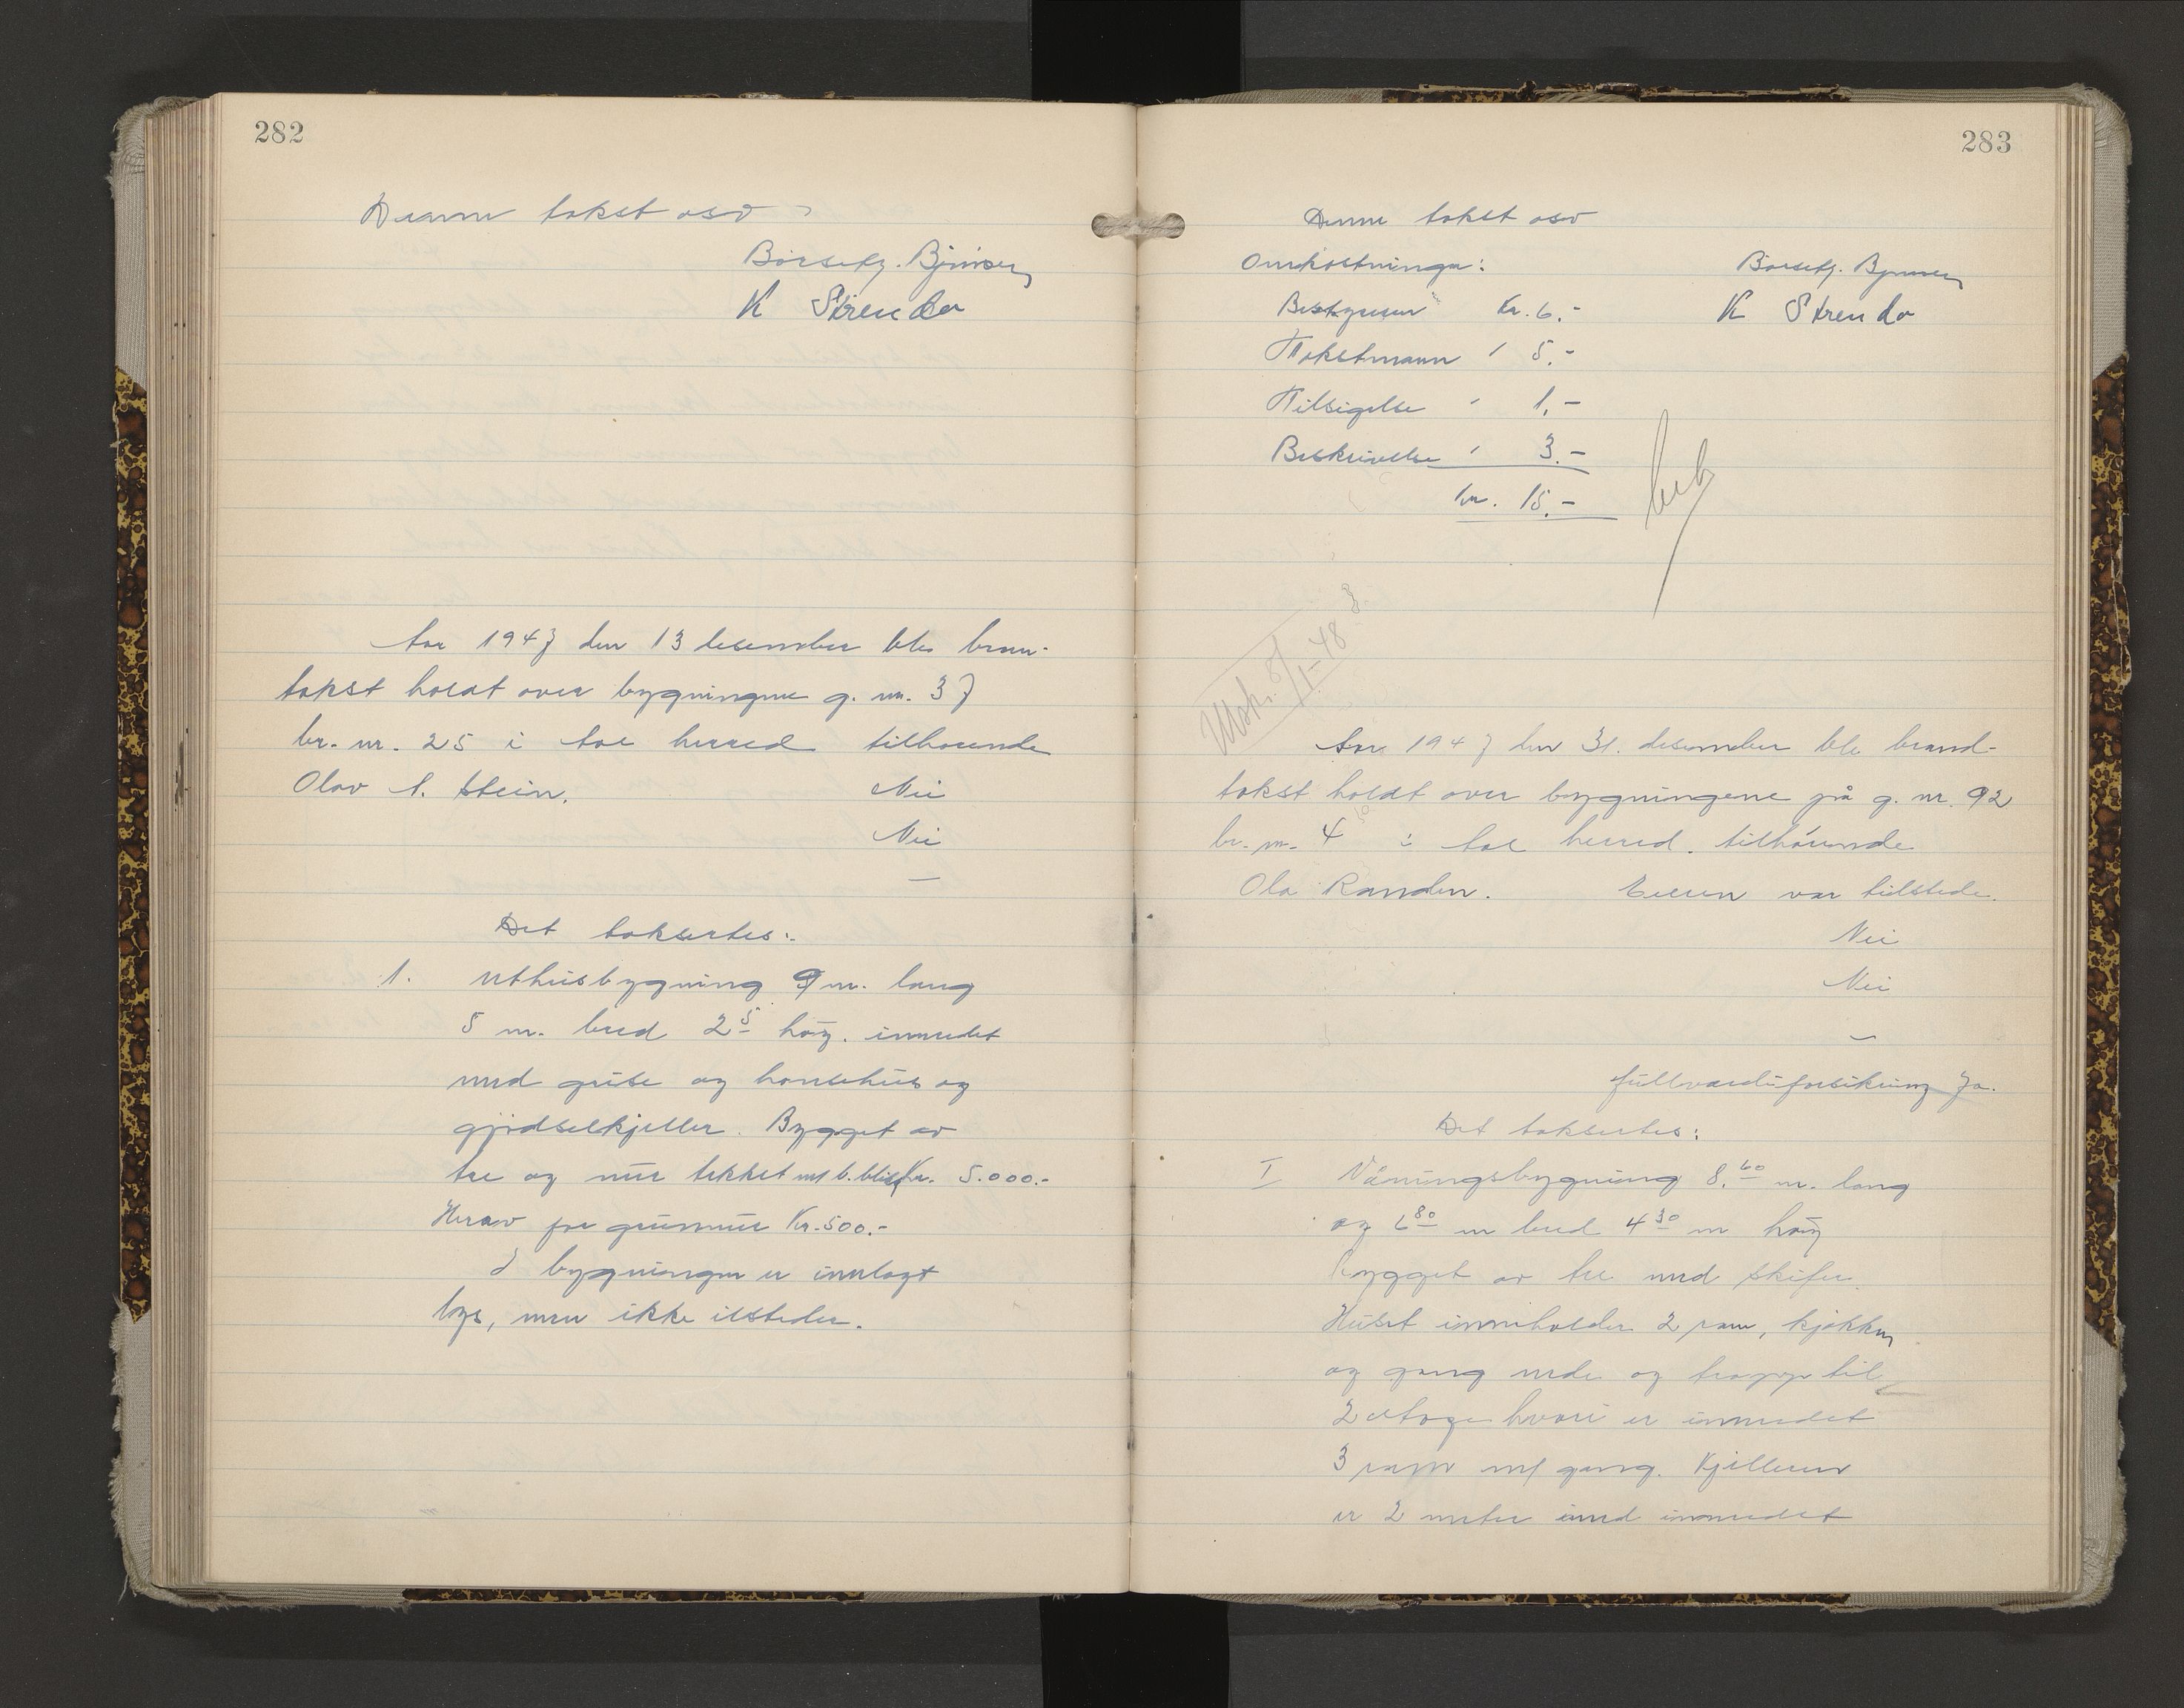 282
Denne takst osv
K Strenda
Aar 1947 den 13 desember ble bran-
takst holdt over bygningene g. nr. 37
br. nr. 25 i Aal herred tilhørende
Olav A. Stein. Nei
Nei
—
Det takseres:
1. uthusbygning 9 m. lang
5 m. bred 2 5 høy. innredet
med grise og hønsehus og
gjødselkjeller. Bygget av
tre og mur tekket m/ b. blikk Kr. 5.000.-
Herav for grunmur Kr. 500.-
I bygningen er innlagt
lys, men ikke ildsteder.
283
Denne takst osv
Omkostninger:
Bestyreren Kr. 6.-
Takstmann " 5.-
K Strenda
Tilsigelse " 1,-
Beskrivelse " 3.-
kr. 15.-
Utsk. 8/1-48
Aar 1947 den 31. desember ble brand-
takst holdt over bygningene på g. nr. 92
br. nr. 4 i Aal herred. tilhørende
Ola Randen. Eieren var tilstede.
Nei
Nei
—
fullverdiforsikring Ja.
Det takseres:
I Våningsbygning 8.60 m. lang
og 6 80 m bred 4 30 m høy
bygget av tre med skifer.
Huset inneholder 2 rom, kjøkken
og gang nede og trapp til
2 etage hvori er innredet
3 rom m/ gang. Kjelleren
er 2 meter innredet